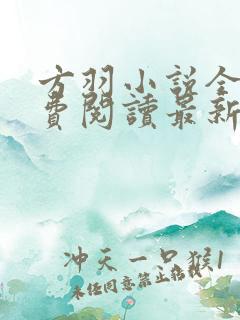 方羽小说全
費閱讀最新
冲天一只猴1
未经同意禁止